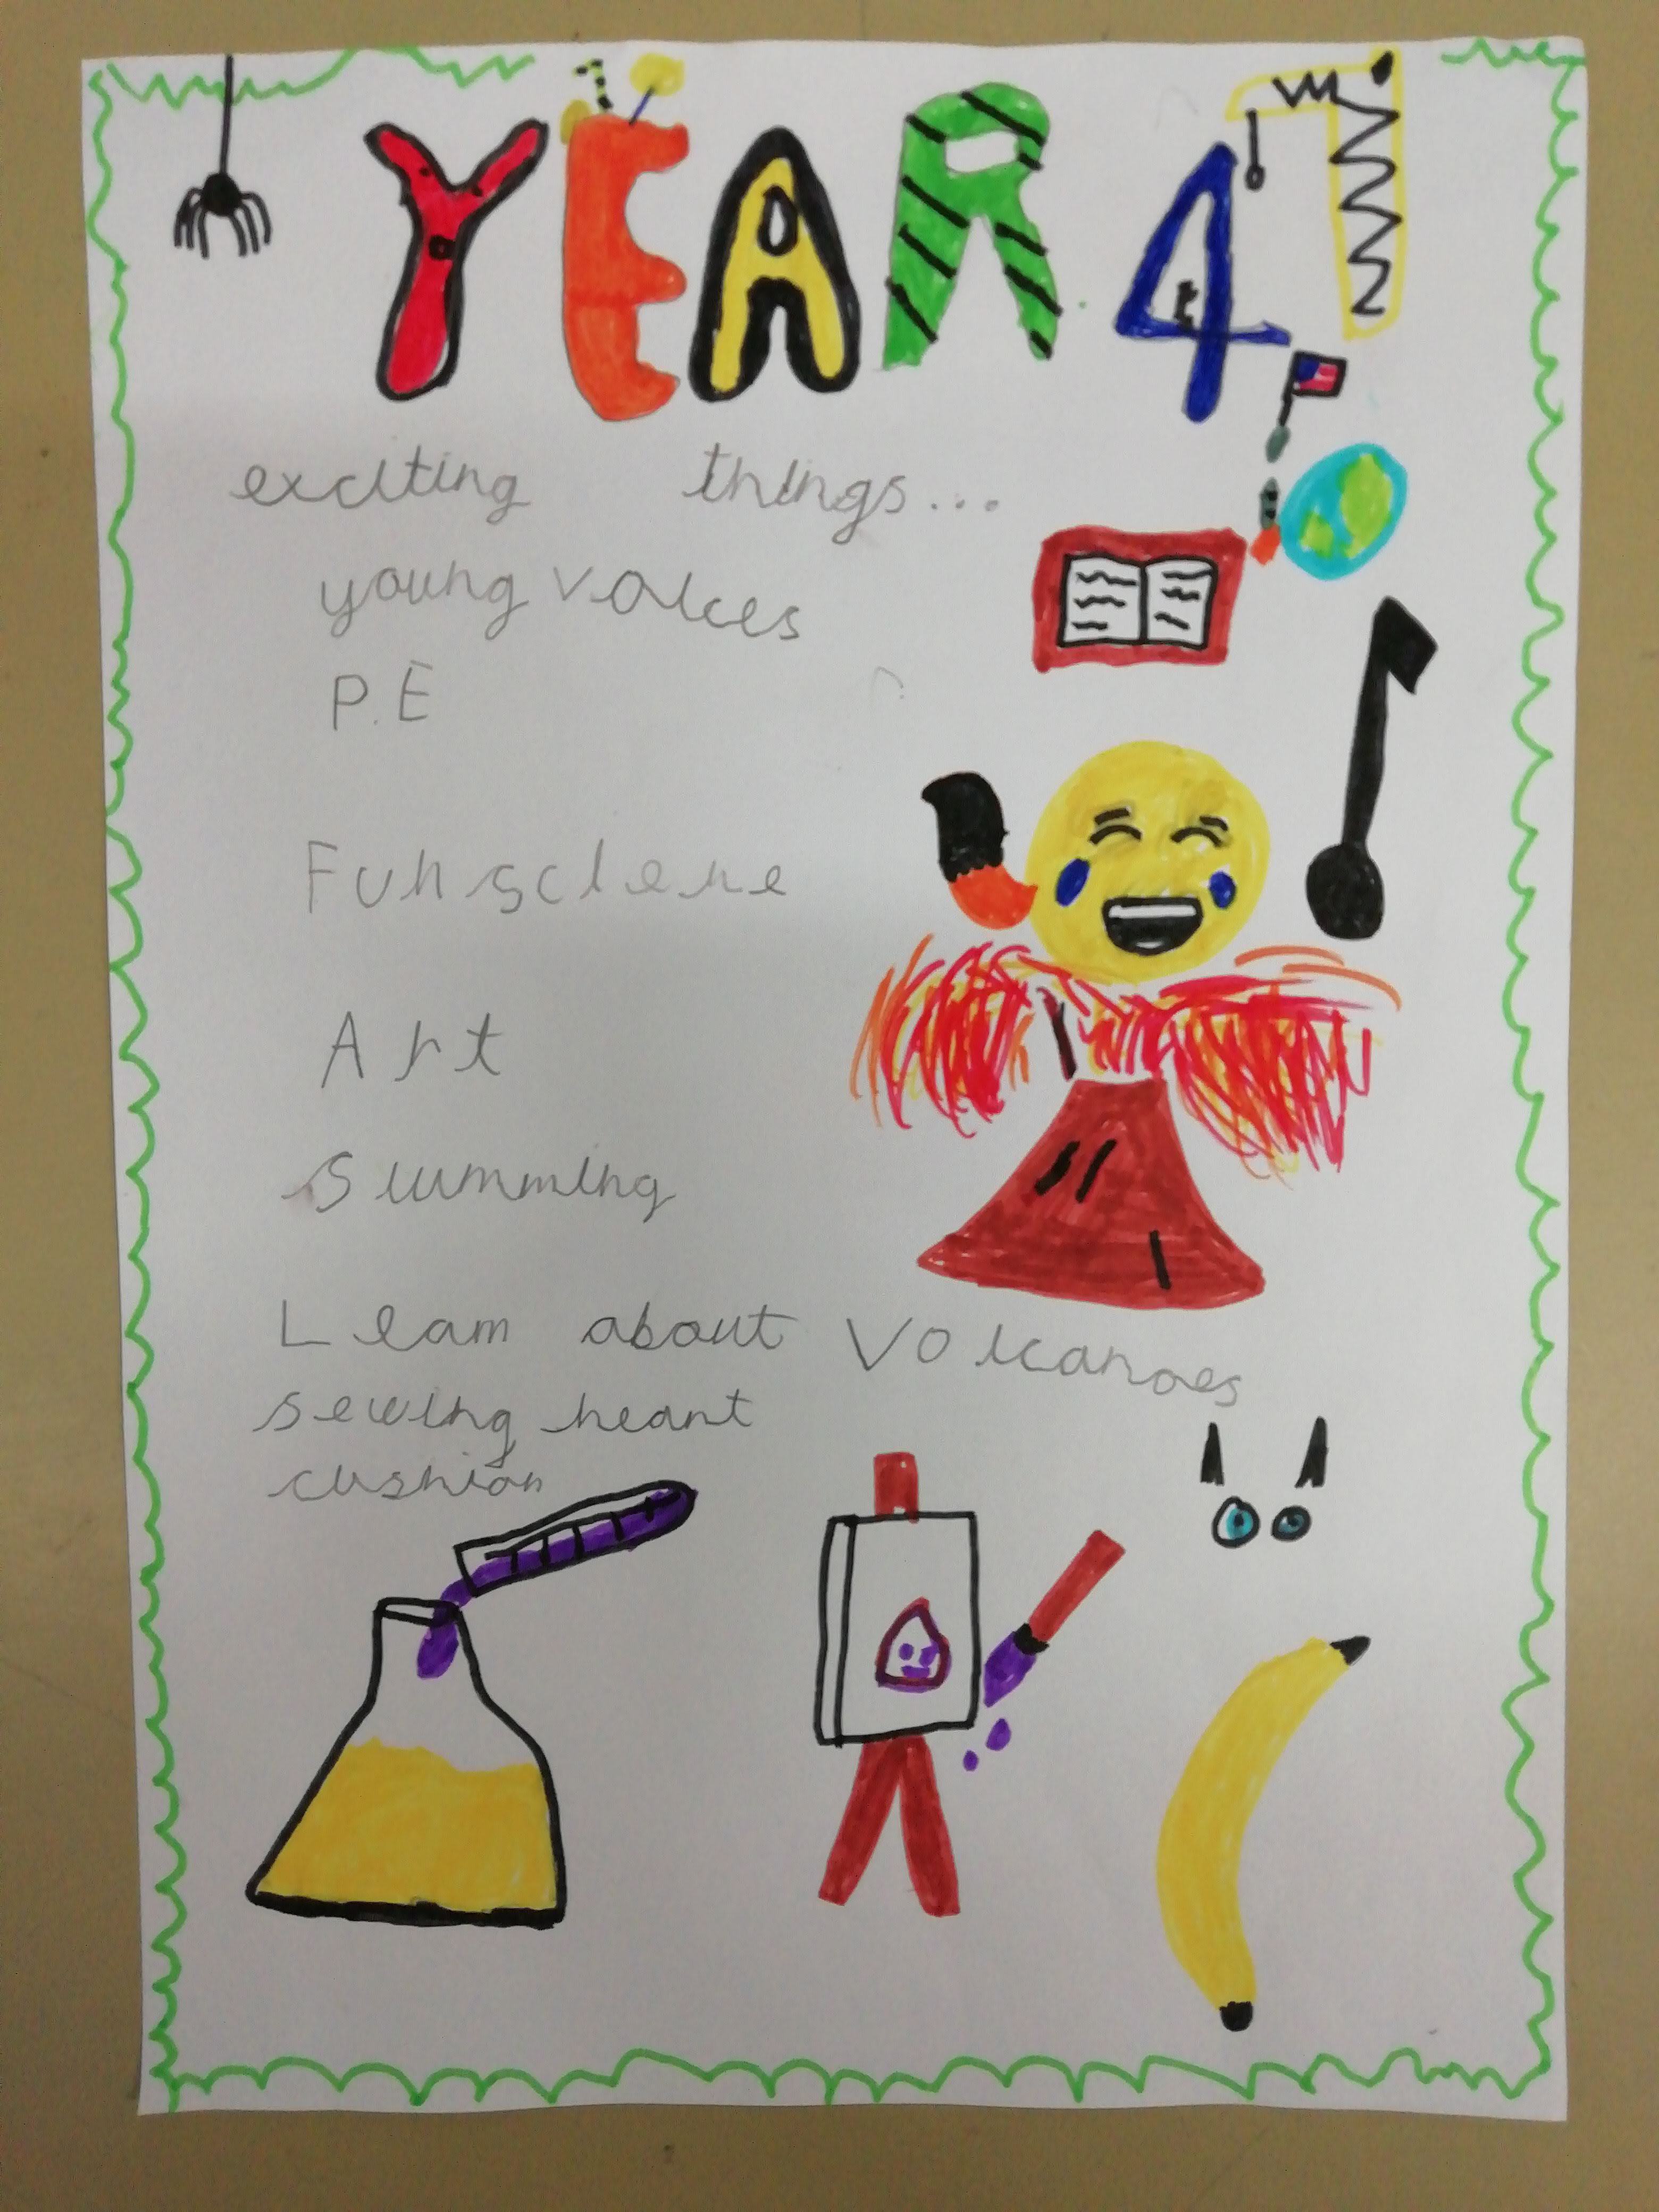 YEAR 4
exciting things...
young voices
P.E
Fun sciene
Art
Swimming
Learn about Volcanoes
sewing heart
cushion